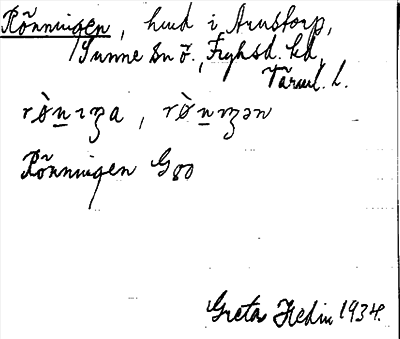 Rönningen, hmd i Arnstorp,
Sunne sn Ö., Fryksd. hd,
Värml. l.
rò̀nıʒa, rò̀nıʒən
Rönningen G80
Greta Hedin 1934.